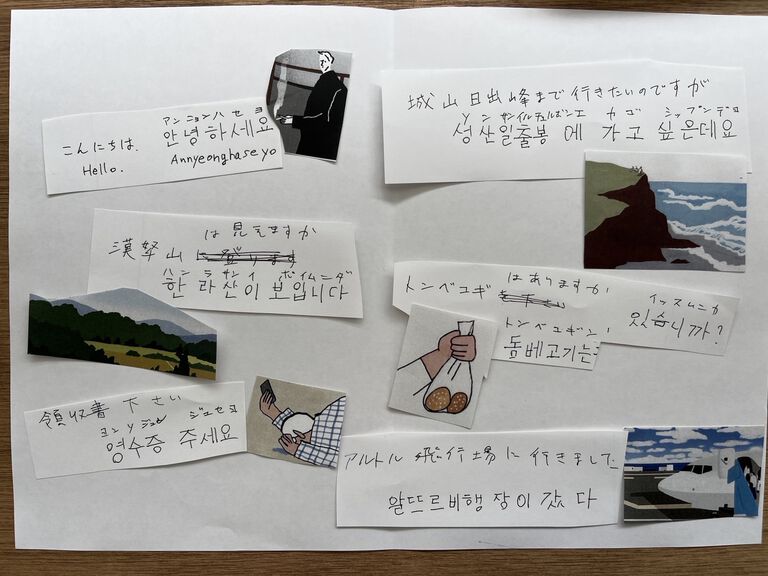 アンニョンハセヨ
こんにちは. 안녕하세요
Hello. Annyeonghaseyo
は見えますか
漢拏山
ハンラサンイ ボイムニダ
한라산이 보입니다
領収書 下さい
ジュセヨ
영수증 주세요
城山日出峰まで行きたいのですが
カゴ シップンデヨ
성산일출봉에 가고 싶은데요
はありますか
トンベコギ
イッスムニカ
있습니까?
トンベコギン
돔베고기는
アルトル飛行場に行きました
알뜨르비행장이 갔다